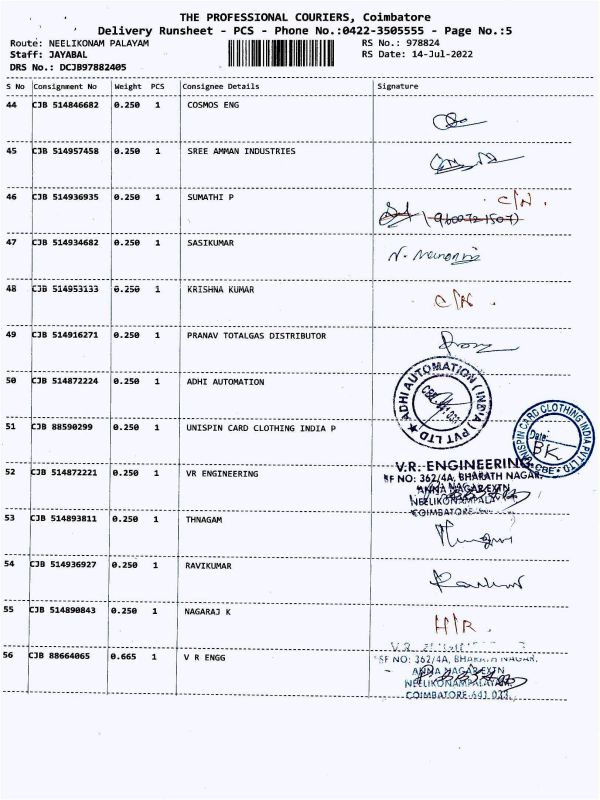 THE PROFESSIONAL COURIERS, Coimbatore
Delivery Runsheet - PCS - Phone No.:0422-3505555 - Page No.:5
Route: NEELIKONAM PALAYAM RS No.: 978824
Staff: JAYABAL RS Date: 14-Jul-2022
DRS No.: DCJB97882405
S No Consignment No Weight PCS Consignee Details Signature
44 CJB 514846682 0.250 1 COSMOS ENG
45 CJB 514957458 0.250 1 SREE AMMAN INDUSTRIES
46 CJB 514936935 0.250 1 SUMATHI P C/N.
(9600721507)
47 CJB 514934682 0.250 1 SASIKUMAR
48 CJB 514953133 0.250 1 KRISHNA KUMAR C/N.
49 CJB 514916271 0.250 1 PRANAV TOTALGAS DISTRIBUTOR
50 CJB 514872224 0.250 1 ADHI AUTOMATION
ADHI AUTOMATION (INDIA) PVT LTD
51 CJB 88590299 0.250 1 UNISPIN CARD CLOTHING INDIA P
UNISPIN CARD CLOTHING INDIA PVT LTD
Date:
BK
CBE
52 CJB 514872221 0.250 1 VR ENGINEERING
V.R. ENGINEERING
SF NO: 362/4A, BHARATH NAGAR,
ANNA NAGAR EXTN
NEELIKONAMPALAYAM
COIMBATORE
53 CJB 514893811 0.250 1 THNAGAM
54 CJB 514936927 0.250 1 RAVIKUMAR
55 CJB 514890843 0.250 1 NAGARAJ K H/R.
56 CJB 88664065 0.665 1 V R ENGG
V.R.
SF NO: 362/4A, BHARATH NAGAR,
ANNA NAGAR EXTN
NEELIKONAMPALAYAM,
COIMBATORE-641 033.